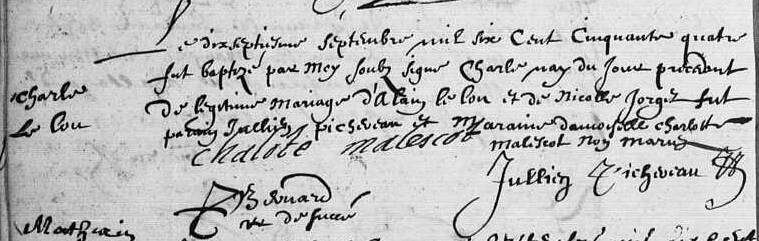 Le dixseptiesme septembre mil six Cent Cinquante quatre
fut baptizé par Moy soubz signé Charle nay du Jour precedant
Charle
Le lou
de legitime Mariage d'Alain le lou et de Nicolle Jorget fut
parain Jullien picheveau et Maraine damoiselle charlotte
Malescot non mariee
chalote malescot
Jullien Picheveau
Beduard
de succé
Mathurin